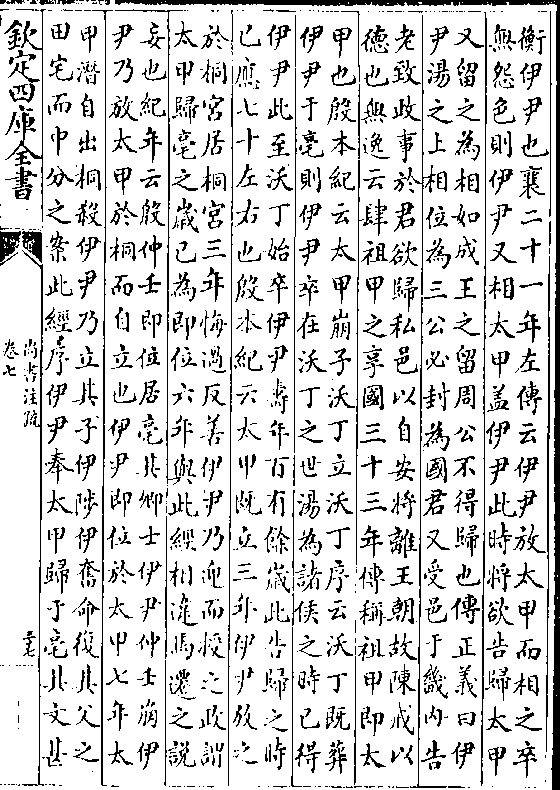 衡伊尹也襄二十一年左傳云伊尹放太甲而相之卒
無怨色則伊尹又相太甲盖伊尹此時將欲告歸太甲
又留之為相如成王之留周公不得歸也傳正義曰伊
尹湯之上相位為三公必封為國君又受邑于畿内告
老致政事於君欲歸私邑以自安將離王朝故陳戒以
德也無逸云肆祖甲之享國三十三年傳稱祖甲即太
甲也殷本紀云太甲崩子沃丁立沃丁序云沃丁既葬
伊尹于亳則伊尹卒在沃丁之世湯為諸侯之時已得
伊尹此至沃丁始卒伊尹壽年百有餘歲此告歸之時
已應七十左右也殷本紀云太甲既立三年伊尹放之
於桐宮居桐宮三年悔過反善伊尹乃迎而授之政謂
太甲歸亳之歲已為即位六年與此經相違馬遷之說
妄也紀年云殷仲壬即位居亳其卿士伊尹仲壬崩伊
尹乃放太甲於桐而自立也伊尹即位於太甲七年太
甲潛自出桐殺伊尹乃立其子伊陟伊奮命復其父之
田宅而中分之案此經序伊尹奉太甲歸于亳其文甚
欽定四庫全書
尚書注疏
卷七
三七